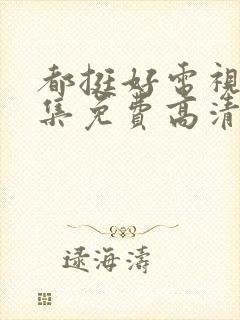 都挺好电視
集免費高清
逯海濤